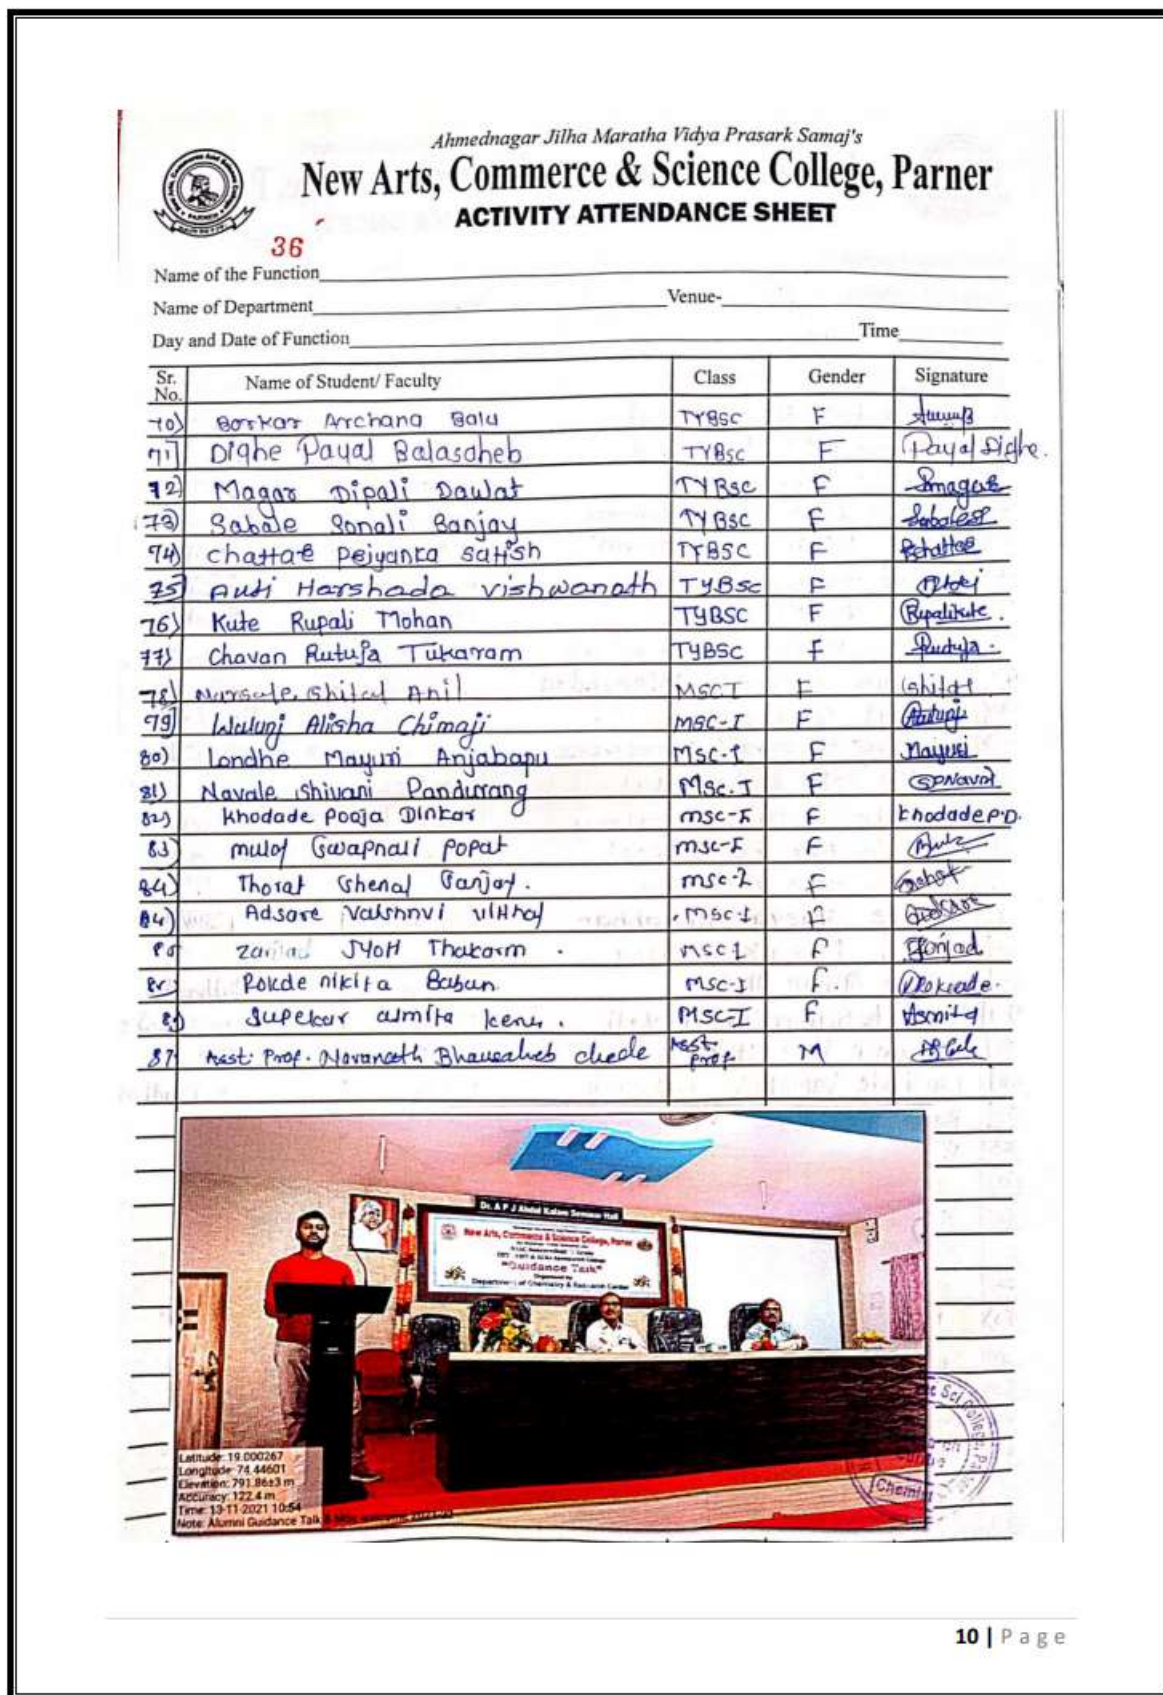 Ahmednagar Jilha Maratha Vidya Prasark Samaj's
New Arts, Commerce & Science College, Parner
ACTIVITY ATTENDANCE SHEET
36
Name of the Function
Name of Department Venue-
Day and Date of Function Time
Sr. No. Name of Student/ Faculty Class Gender Signature
70) Borkar Archana Balu TYBSC F
71) Dighe Payal Balasaheb TYBSC F Payal Dighe.
72) Magar Dipali Daulat TYBSC F
73) Sabale Sonali Sanjay TYBSC F
74) Chattar Peiyanka Satish TYBSC F
75) Auti Harshada Vishwanath TYBSC F
76) Kute Rupali Mohan TYBSC F Rupalikute.
77) Chavan Rutuja Tukaram TYBSC F Rutuja.
78) Narsale Shital Anil MSC I F Shital
79) Walunj Alisha Chimaji MSC-I F
80) Londhe Mayuri Anjabapu MSC-I F Mayuri
81) Navale Shivani Pandurang MSC.I F
82) Khodade Pooja Dinkar MSC-I F Khodade P.D.
83) Swapnali Popat MSC-I F
84) Thorat Sanjay. MSC-I F
84) Adsare Vaishnvi Vitthal MSC-I F
Zanjad Jyoti Thakarm MSC I F
Rokde Nikita Baban MSC-I F
Supekar MSC-I F Asmita
87) Asst. Prof. Navanath Bhausaheb Asst. Prof M
Dr. A P J Abdul Kalam Seminar Hall
New Arts, Commerce & Science College, Parner
"Guidance Talk"
Organized by
Department of Chemistry & Research Center
Latitude: 19.000267
Longitude: 74.44601
Elevation: 791.86±3 m
Accuracy: 122.4 m
Time: 13-11-2021 10:54
Note: Alumni Guidance Talk
10 | Page